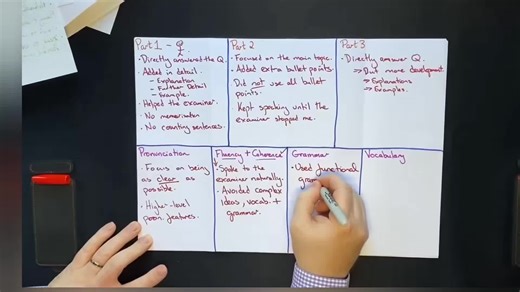 Part 1 - Q
• Directly answered the Q.
• Added in detail
- Explanation
- Further Detail
- Example.
• Helped the examiner
• No memorisation
• No counting sentences.
Part 2
• Focused on the main topic.
• Added extra bullet points.
Did not use all bullet
points.
Kept speaking until the
examiner stopped me.
Part 3
• Directly answer Q.
>> But more development.
→ Explanations
→ Examples.
Pronunciation
• Focus on being
as clear as
possible.
• Higher-level
pron. features.
Fluency + Coherence
• Spoke to the
examiner naturally.
• Avoided complex
ideas, vocab. +
grammar.
Grammar
• Used functional
gram
Vocabulary